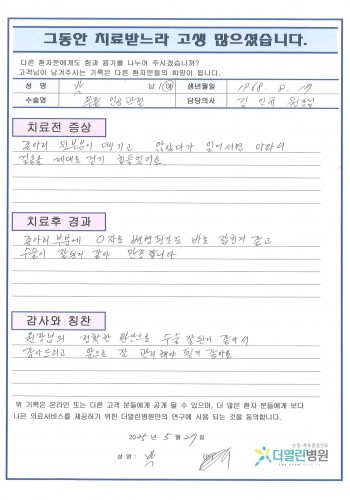 그동안 치료받느라 고생 많으셨습니다.
다른 환자분에게도 힘과 용기를 나누어 주시겠습니까?
고객님이 남겨주시는 기록은 다른 환자분들의 희망이 됩니다.
성 명 남 / 여 생년월일 1968. 8. 17
수술명 무릎 인공관절 담당의사 김 원장
치료전 증상
종아리 뒷부분이 땡기고 앉았다가 일어서면 아파서
걸음을 제대로 걷기 힘들었어요
치료후 경과
종아리 부분에 O자로 변형된것도 바로 잡힌거 같고
수술이 잘된거 같아 만족합니다
감사와 칭찬
원장님의 정확한 판단으로 수술 잘된거 같아서
감사드리고 앞으로 잘 관리해야 될거 같아요
위 기록은 온라인 또는 다른 고객 분들에게 공개 될 수 있으며, 더 많은 환자 분들에게 보다
나은 의료서비스를 제공하기 위한 더열린병원만의 연구에 사용 되는 것을 동의합니다.
2025년 5월 27일
성 명 : (인)
더열린병원